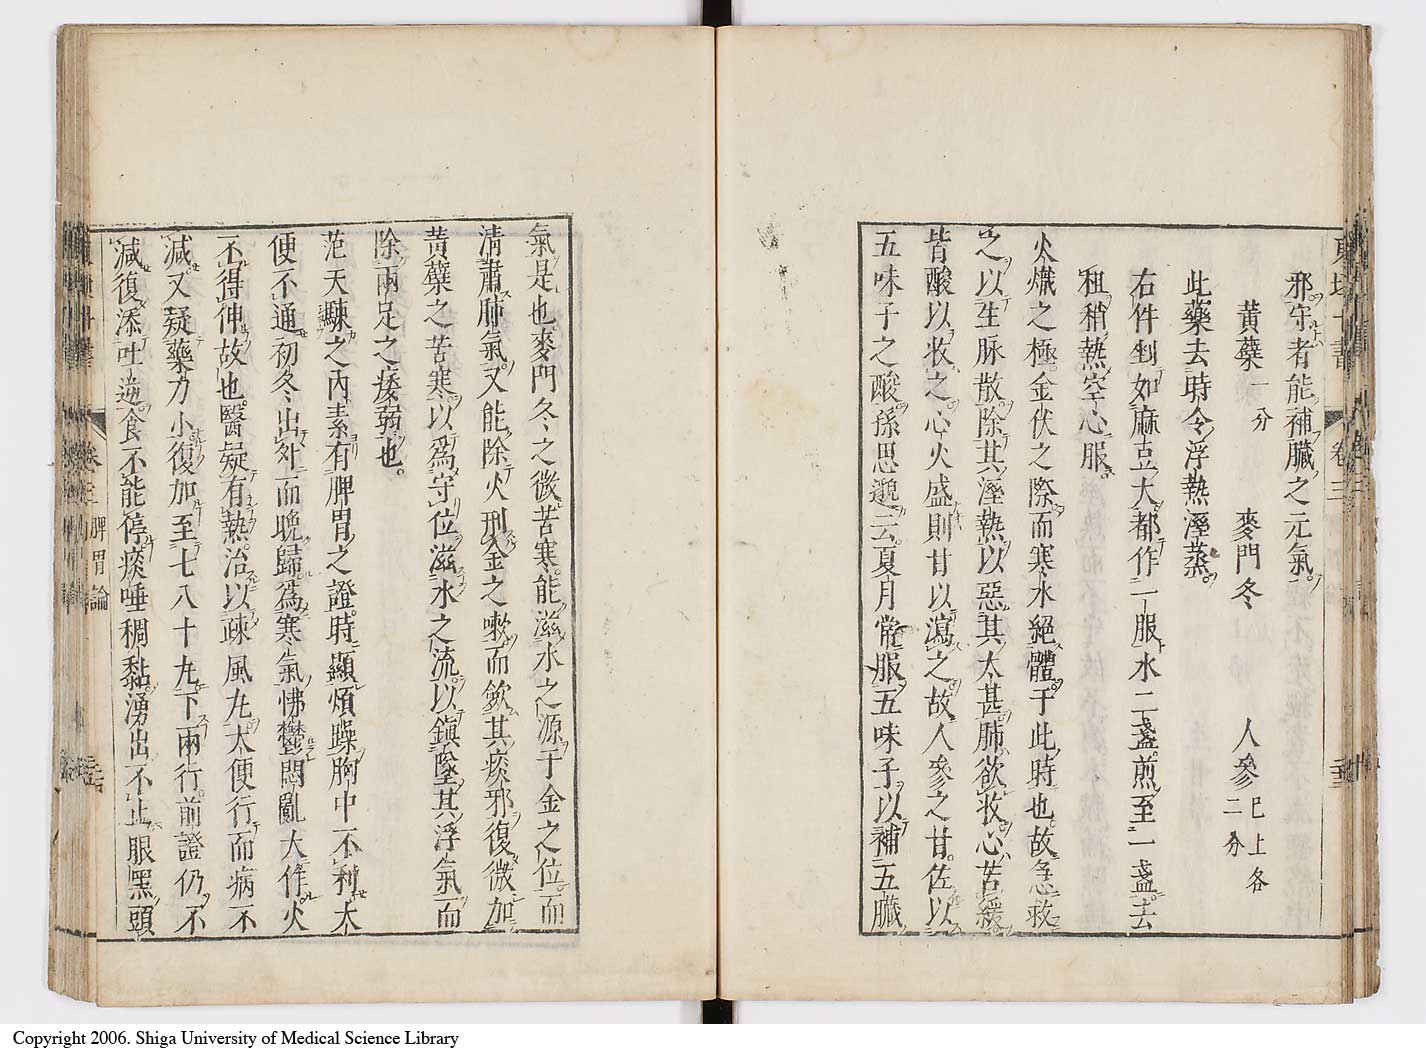 東垣十書
卷三
邪守者能補臟之元氣
黃蘗一分 麥門冬 人參已上各二分
此藥去時令浮熱溼蒸
右件剉如麻豆大都作一服水二盞煎至一盞去
租稍熱空心服
火熾之極金伏之際而寒水絕體于此時也故急救
之以生脉散除其溼熱以惡其太甚肺欲收心苦緩
皆酸以收之心火盛則甘以瀉之故人參之甘佐以
五味子之酸孫思邈云夏月常服五味子以補五臟
氣是也麥門冬之微苦寒能滋水之源于金之位而
清肅肺氣又能除火刑金之嗽而斂其痰邪復微加
黃蘗之苦寒以爲守位滋水之流以鎮墜其浮氣而
除兩足之痿弱也
范天騋之內素有脾胃之證時顯煩躁胸中不利太
便不通初冬出外而晚歸爲寒氣怫鬱悶亂大作火
不得伸故也醫疑有熱治以疎風丸大便行而病不
減又疑藥力小復加至七八十丸下兩行前證仍不
減復添吐逆食不能停痰唾稠黏湧出不止眼黑頭
卷三 脾胃論
Copyright 2006. Shiga University of Medical Science Library